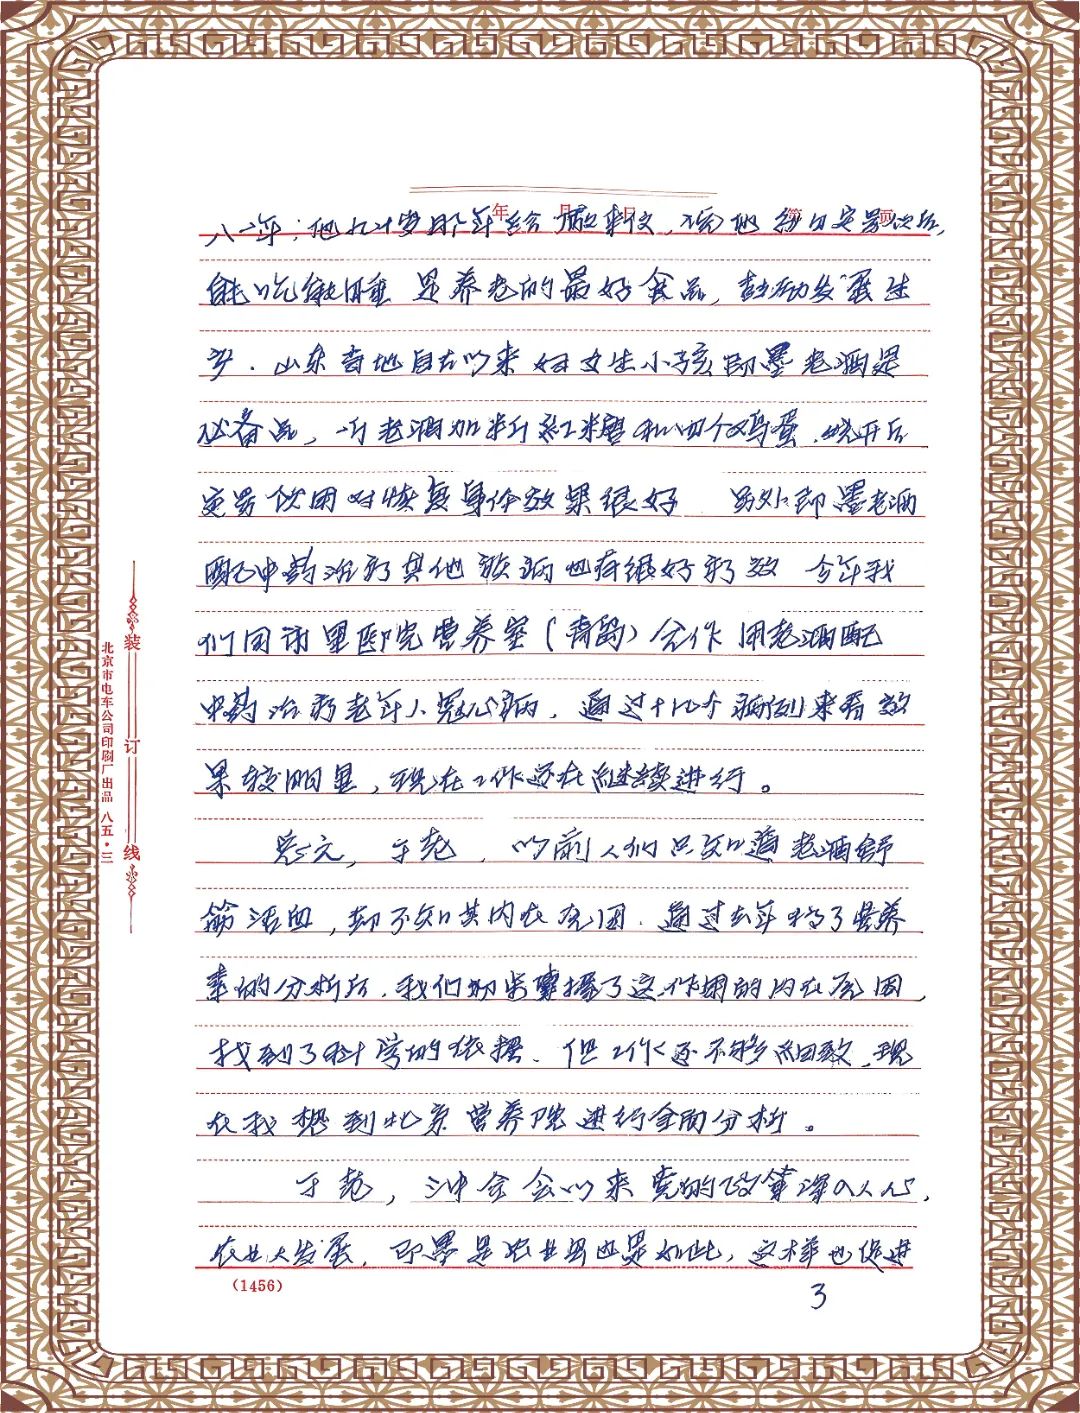 年 月 日 第 页
八一年，他九十岁那年给厂致来仪，说他每日定量饮后，
能吃能睡 是养老的最好食品，鼓励发展生
产．山东当地自古以来妇女生小孩即墨老酒是
必备品，一斤老酒加半斤红糖和四个鸡蛋．烧开后
定量饮用对恢复身体效果很好 另外即墨老酒
配中药治疗其他疾病也有很好疗效 今年我
们同 医院营养室（青岛）合作 用老酒配
中药治疗老年人冠心病，通过十几个病例来看效
果较明显，现在工作还在继续进行。
总之，于老，以前人们只知道老酒舒
筋活血，却不知其内在原因．通过去年搞了营养
素的分析后．我们初步掌握了这作用的内在原因，
找到了科学的依据．但工作还不够细致 现
在我想到北京营养院进行全面分析。
于老，三中全会以来党的政策深入人心，
农业大发展．即墨是农业县也是如此，这样也促进
(1456)
3
装订线
北京市电车公司印刷厂出品 八五·三